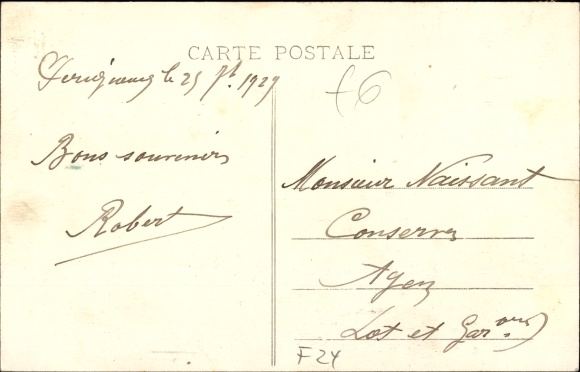 CARTE POSTALE
Perigueux le 25 7bre 1929
f6
Bons souvenirs
Robert
Monsieur Naissant
Conserves
Agen
Lot et Garonne
F24